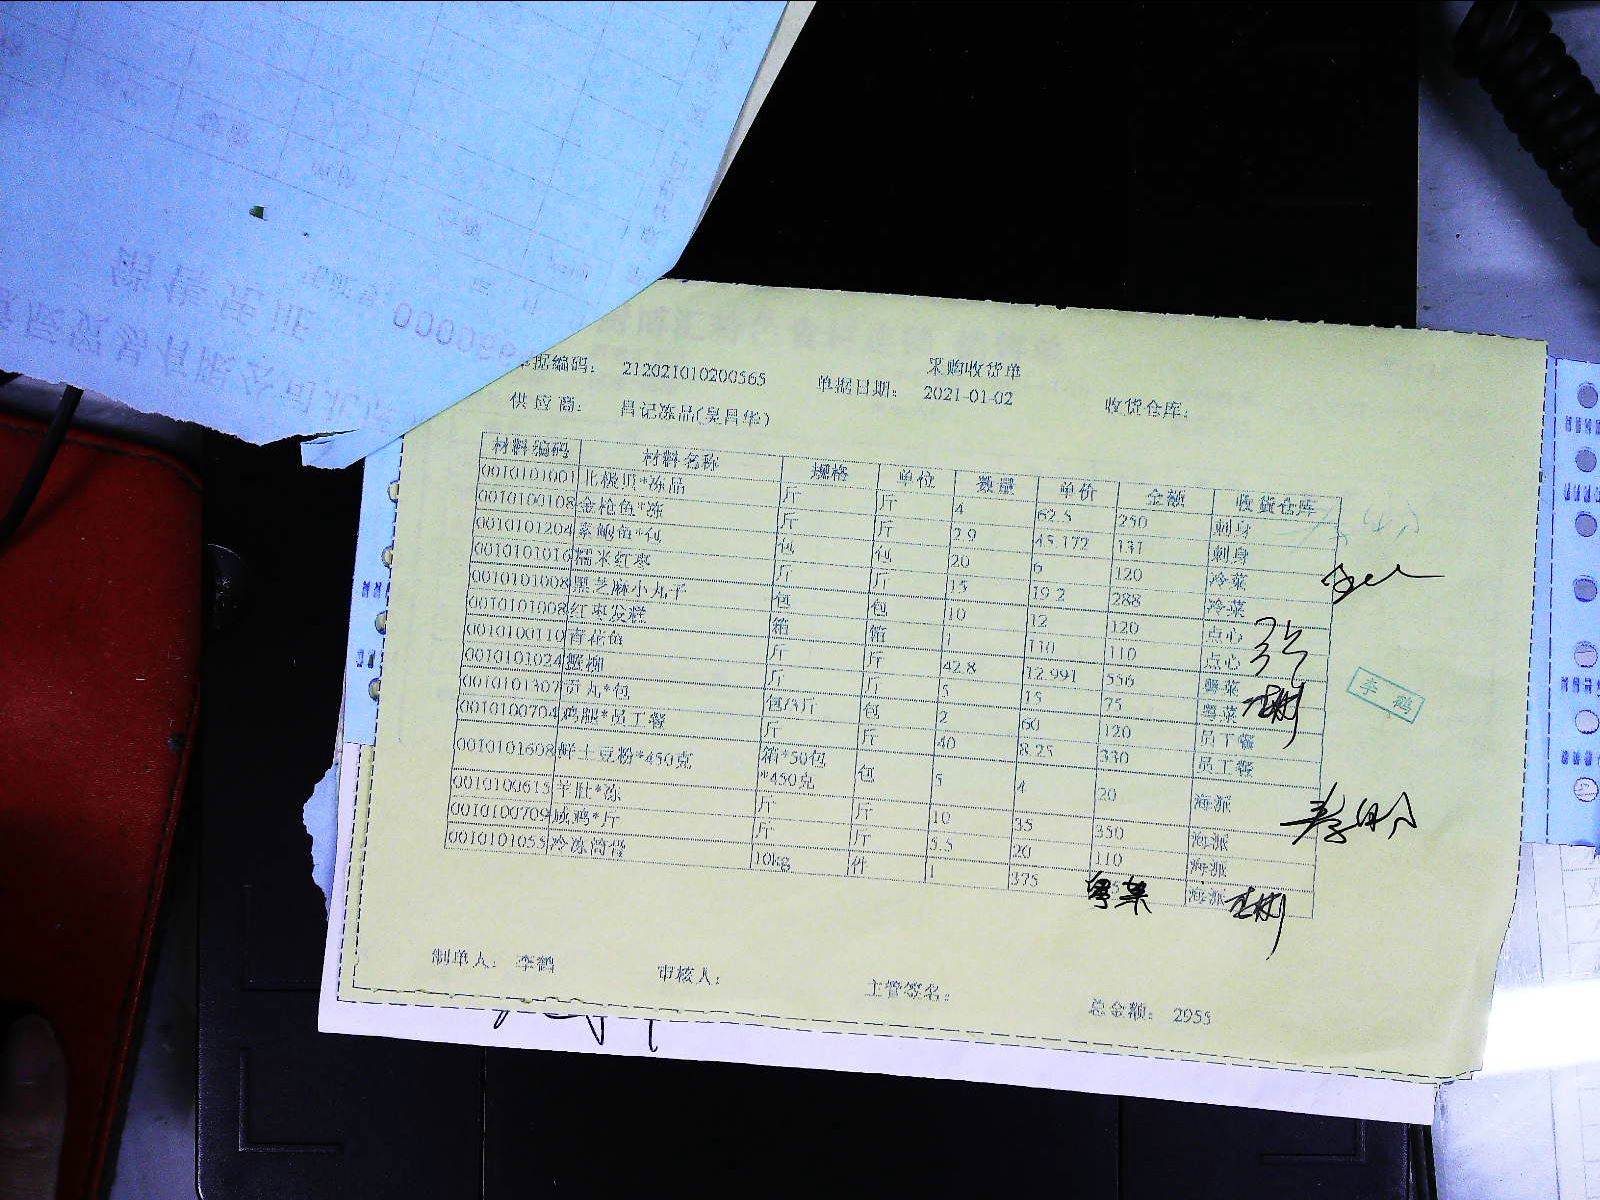 采购收货单
单据编码： 212021010200565 单据日期： 2021-01-02 收货仓库：
供应商： 昌记冻品(吴昌华)
材料编码 材料名称 规格 单位 数量 单价 金额 收货仓库
0010101001 北极贝*冻品 斤 斤 4 62.5 250 刺身
0010100108 金枪鱼*冻 斤 斤 2.9 45.172 131 刺身
0010101204 素鲍鱼*包 包 包 20 6 120 冷菜
0010101016 糯米红枣 斤 斤 15 19.2 288 冷菜
0010101008 黑芝麻小丸子 包 包 10 12 120 点心
0010101008 红枣发糕 箱 箱 1 110 110 点心
0010100110 青花鱼 斤 斤 42.8 12.991 556 粤菜
0010101024 蟹柳 斤 斤 5 15 75 粤菜
0010101307 贡丸*包 包/3斤 包 2 60 120 员工餐
0010100704 鸡腿*员工餐 斤 斤 40 8.25 330 员工餐
0010101608 鲜土豆粉*450克 箱*50包*450克 包 5 4 20 海派
0010100615 羊肚*冻 斤 斤 10 35 350 海派
0010100709 咸鸡*斤 斤 斤 5.5 20 110 海派
0010101055 冷冻筒骨 10kg 件 1 375 粤菜 海派
李鹤
制单人： 李鹤 审核人： 主管签名： 总金额： 2955